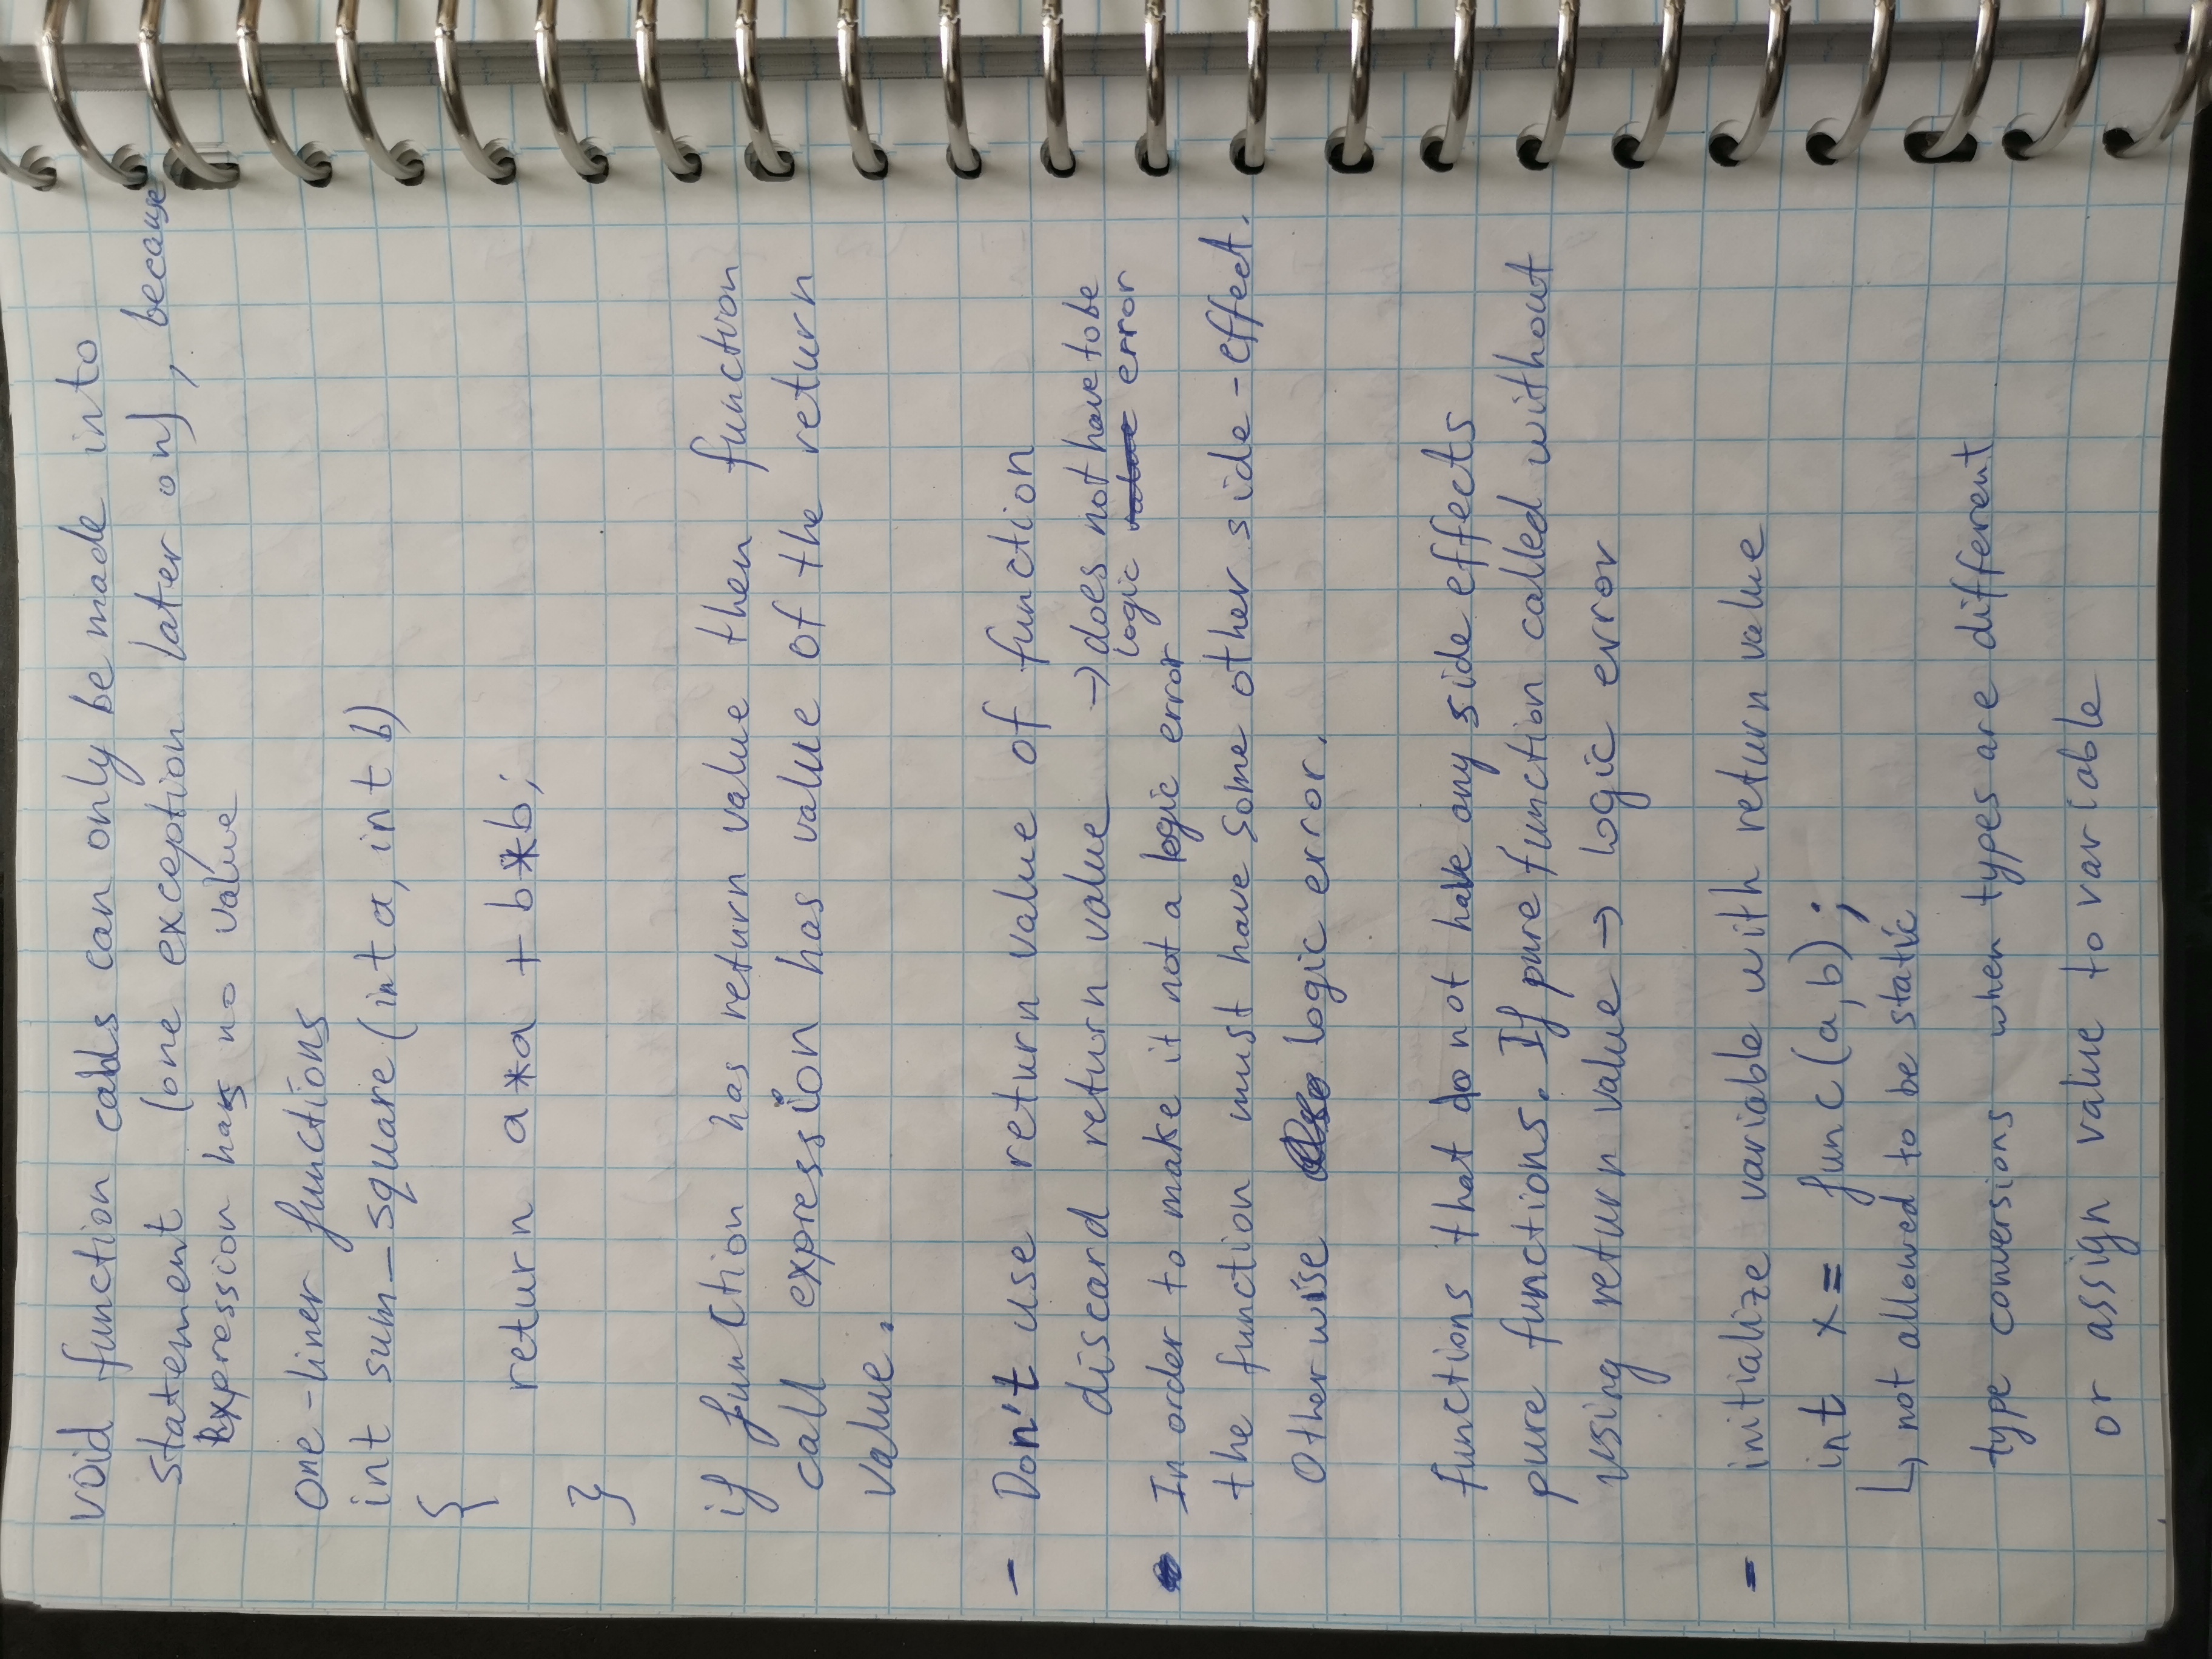 void function calls can only be made into
statement (one exception later on), because
expression has no value
one-liner functions
int sum_square (int a, int b)
{
return a*a + b*b;
}
if function has return value then function
call expression has value of the return
value.
- Don't use return value of function
discard return value → does not have to be
logic error
In order to make it not a logic error
the function must have some other side-effect.
Otherwise logic error.
functions that do not have any side effects
pure functions. If pure function called without
using return value → logic error
- initialize variable with return value
int x = func(a,b);
↳ not allowed to be static
type conversions when types are different
or assign value to variable